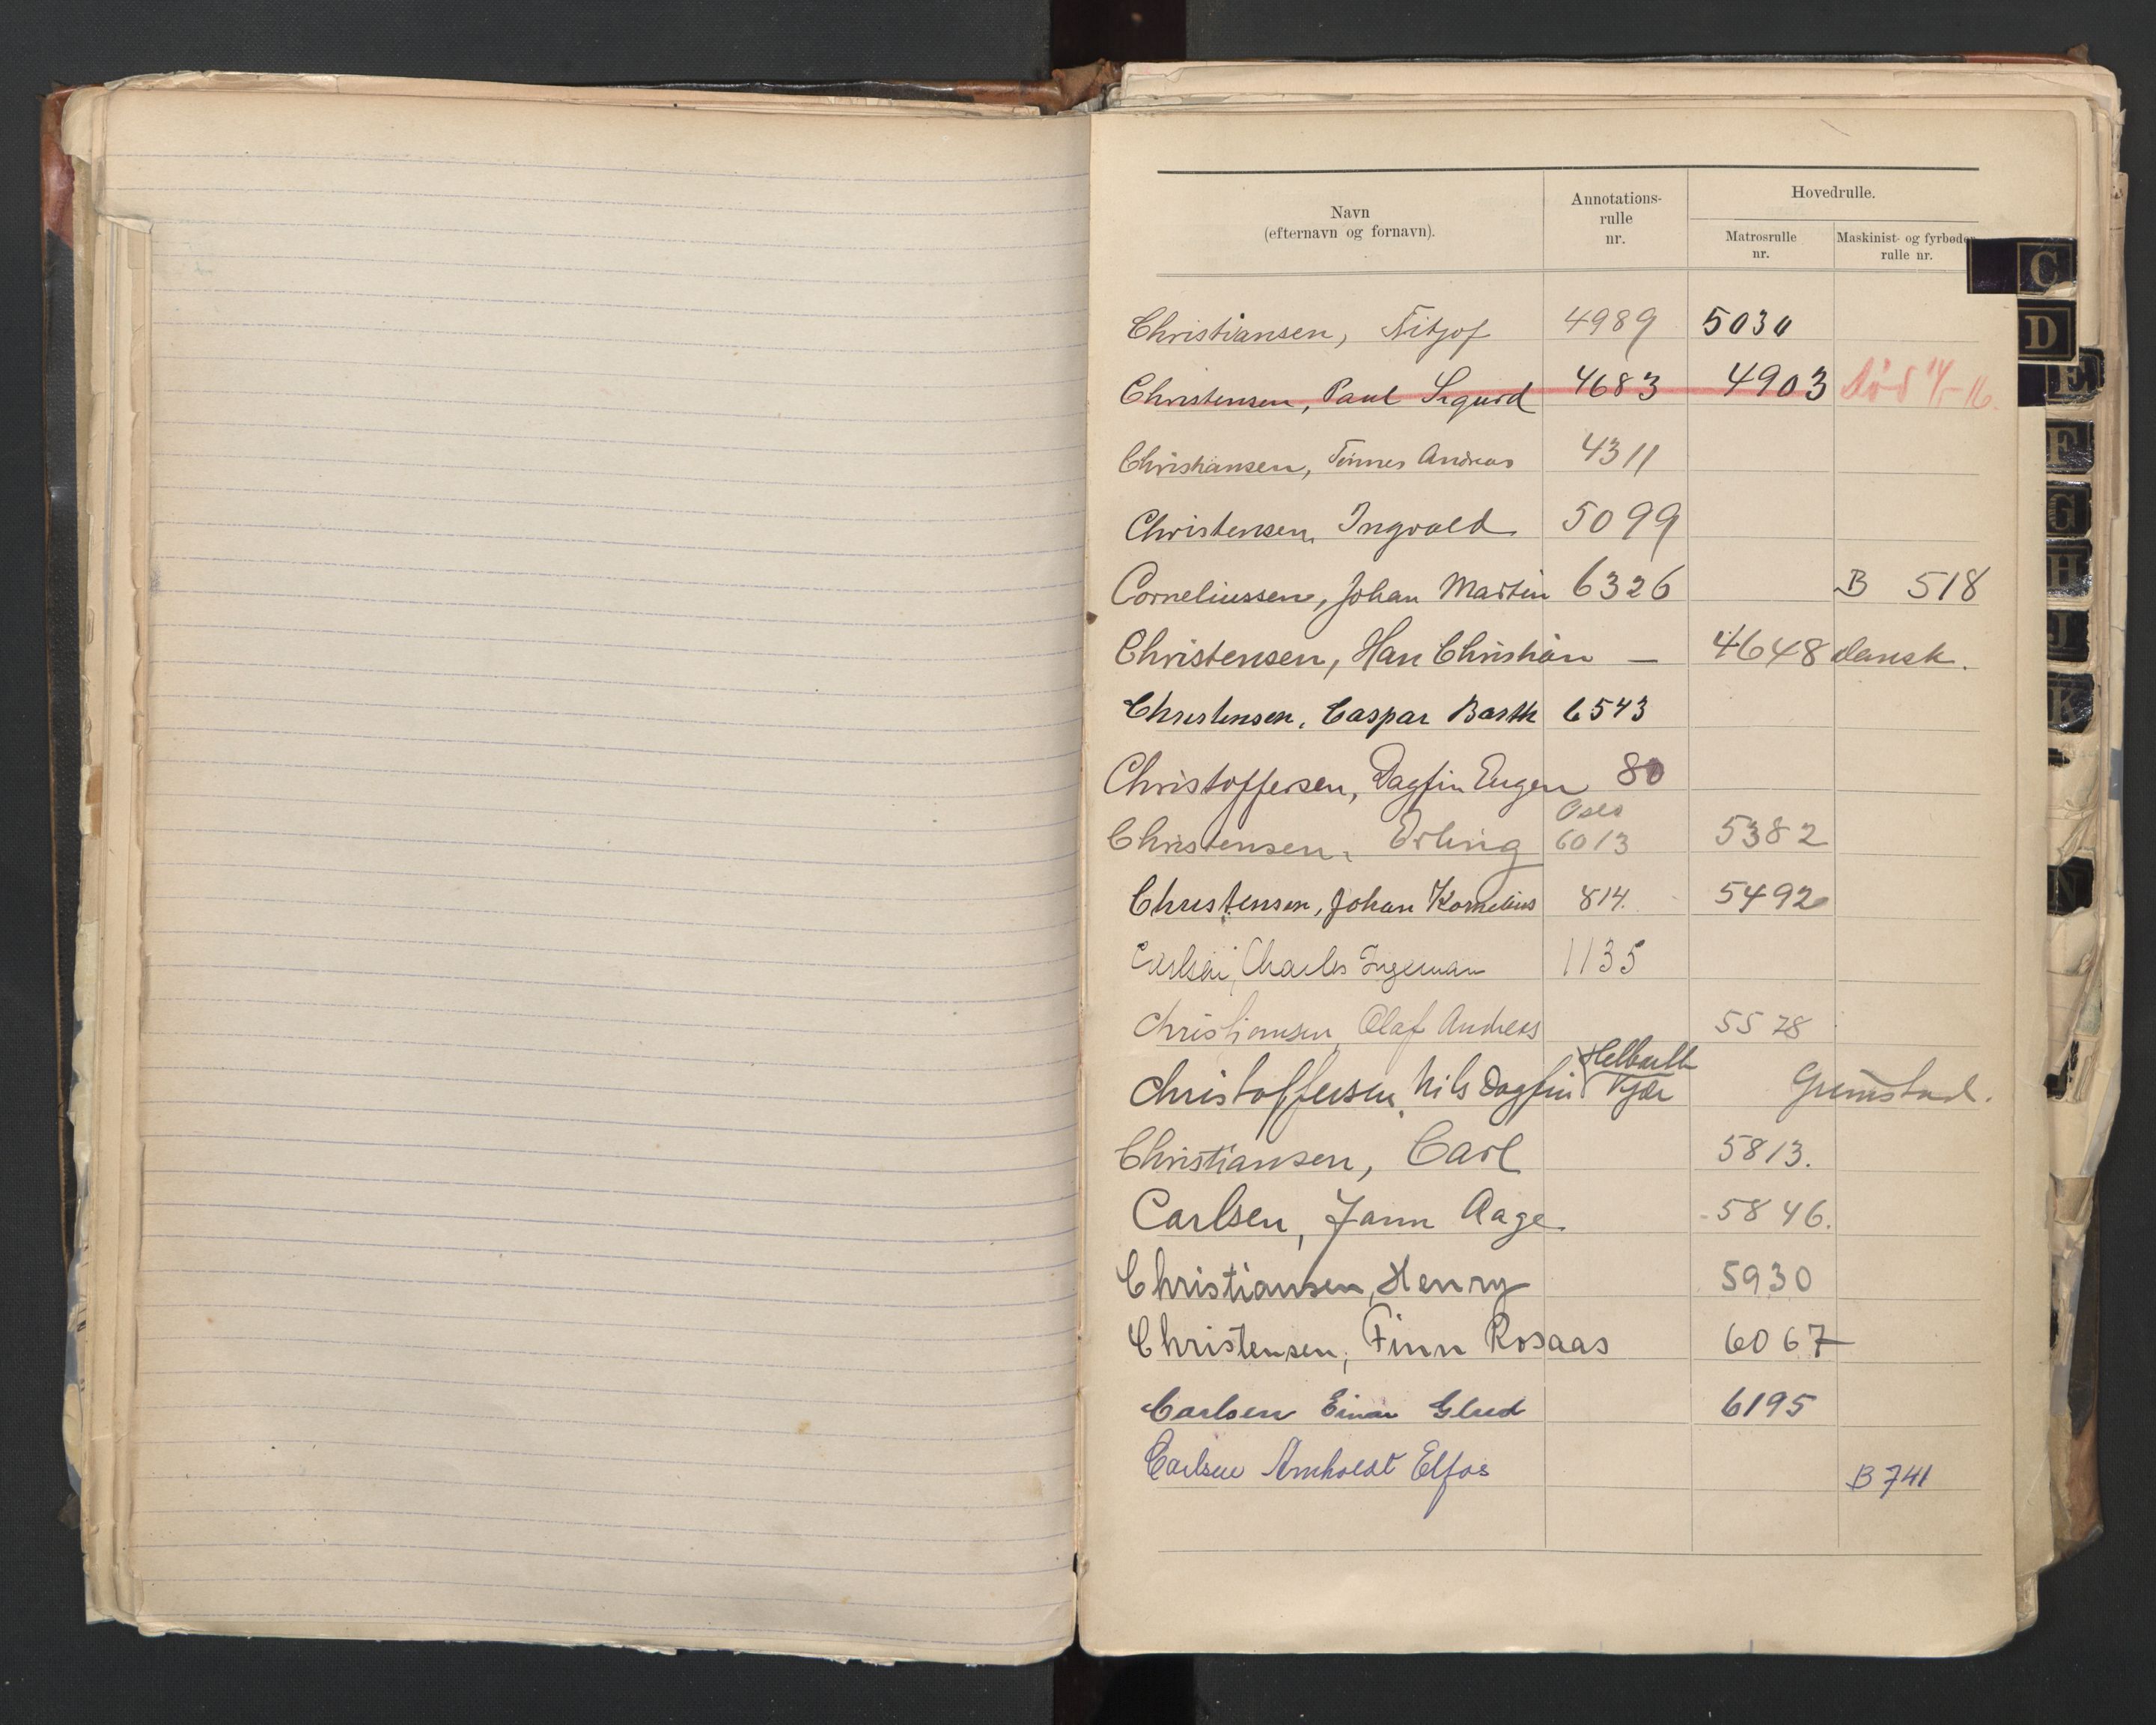 Navn
(efternavn og fornavn).
Annotations-
rulle
nr.
Hovedrulle.
Matrosrulle
nr.
Maskinist- og fyrbøder
rulle nr.
Christiansen, Fritjof 4989 5030
Christensen, Paul Sigurd 4683 4903 død
Christiansen, Tønnes Andreas 4311
Christensen, Ingvald 5099
Corneliussen, Johan Martin 6326 B 518
Christensen, Han Christian — 4648 dansk.
Christensen, Caspar Barth 6543
Christoffersen, Dagfin Eugen 80
Oslo
Christensen, Erling 6013 5382
Christensen, Johan Kornelius 814. 5492
Carlsen, Charles Ingeman 1135
Christiansen, Olaf Andreas 5578
Christoffersen, Nils Dagfin Kjær Grimstad.
Christiansen, Carl 5813.
Carlsen, Jann Aage 5846.
Christiansen, Henry 5930
Christensen, Finn Rosaas 6067
Carlsen Einar Glud 6195
Carlsen Arnholdt Elfos B 741
C
D
E
F
G
H
J
K
N